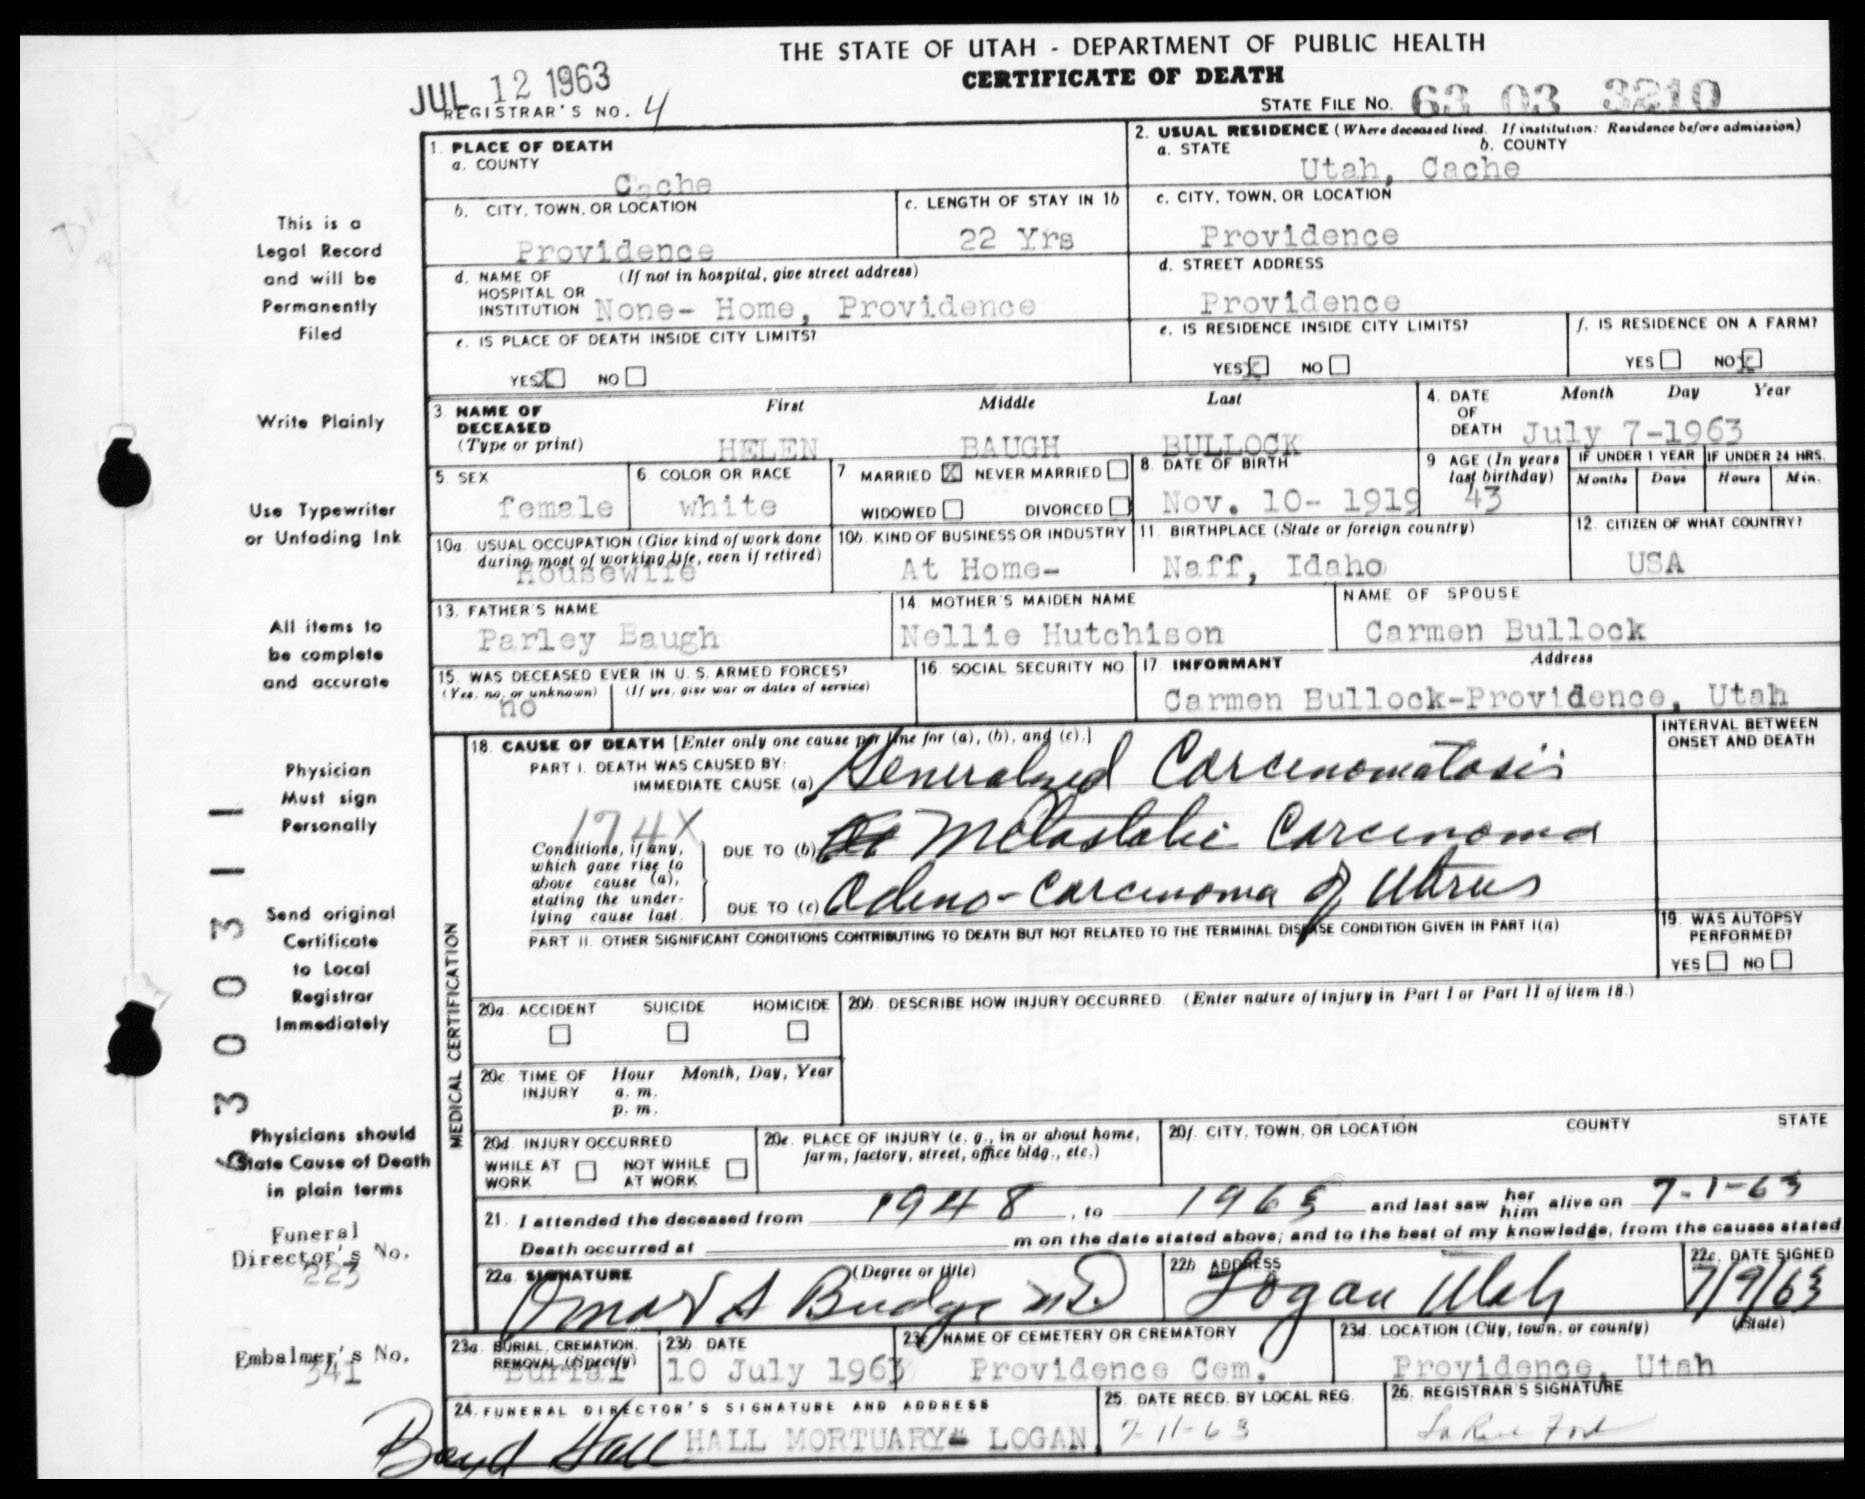 THE STATE OF UTAH - DEPARTMENT OF PUBLIC HEALTH
CERTIFICATE OF DEATH
JUL 12 1963
REGISTRAR'S NO. 4
STATE FILE NO. 63 03 3210
1. PLACE OF DEATH
a. COUNTY
Cache
2. USUAL RESIDENCE (Where deceased lived. If institution: Residence before admission)
a. STATE b. COUNTY
Utah, Cache
b. CITY, TOWN, OR LOCATION
Providence
c. LENGTH OF STAY IN 1b
22 Yrs
c. CITY, TOWN, OR LOCATION
Providence
d. NAME OF HOSPITAL OR INSTITUTION (If not in hospital, give street address)
None- Home, Providence
d. STREET ADDRESS
Providence
e. IS PLACE OF DEATH INSIDE CITY LIMITS?
YES X NO
e. IS RESIDENCE INSIDE CITY LIMITS?
YES X NO
f. IS RESIDENCE ON A FARM?
YES NO X
3. NAME OF DECEASED (Type or print)
First Middle Last
HELEN BAUGH BULLOCK
4. DATE OF DEATH
Month Day Year
July 7-1963
5. SEX
female
6 COLOR OR RACE
white
7 MARRIED X NEVER MARRIED
WIDOWED DIVORCED
8. DATE OF BIRTH
Nov. 10- 1919
9 AGE (In years last birthday)
43
IF UNDER 1 YEAR
Months Days
IF UNDER 24 HRS.
Hours Min.
10a. USUAL OCCUPATION (Give kind of work done during most of working life, even if retired)
Housewife
10b. KIND OF BUSINESS OR INDUSTRY
At Home-
11. BIRTHPLACE (State or foreign country)
Naff, Idaho
12. CITIZEN OF WHAT COUNTRY?
USA
13. FATHER'S NAME
Parley Baugh
14 MOTHER'S MAIDEN NAME
Nellie Hutchison
NAME OF SPOUSE
Carmen Bullock
15. WAS DECEASED EVER IN U. S. ARMED FORCES?
(Yes, no, or unknown) (If yes, give war or dates of service)
no
16. SOCIAL SECURITY NO.
17. INFORMANT Address
Carmen Bullock-Providence, Utah
MEDICAL CERTIFICATION
18. CAUSE OF DEATH [Enter only one cause per line for (a), (b), and (c).]
INTERVAL BETWEEN ONSET AND DEATH
PART I. DEATH WAS CAUSED BY:
IMMEDIATE CAUSE (a) Generalized Carcinomatosis
174X
Conditions, if any, which gave rise to above cause (a), stating the underlying cause last.
DUE TO (b) Metastatic Carcinoma
DUE TO (c) Adeno-carcinoma of Utrus
PART II. OTHER SIGNIFICANT CONDITIONS CONTRIBUTING TO DEATH BUT NOT RELATED TO THE TERMINAL DISEASE CONDITION GIVEN IN PART I(a)
19. WAS AUTOPSY PERFORMED?
YES NO
20a. ACCIDENT SUICIDE HOMICIDE
20b. DESCRIBE HOW INJURY OCCURRED. (Enter nature of injury in Part I or Part II of item 18.)
20c. TIME OF INJURY Hour Month, Day, Year
a. m.
p. m.
20d. INJURY OCCURRED
WHILE AT WORK NOT WHILE AT WORK
20e. PLACE OF INJURY (e. g., in or about home, farm, factory, street, office bldg., etc.)
20f. CITY, TOWN, OR LOCATION COUNTY STATE
21. I attended the deceased from 1948, to 1963 and last saw her him alive on 7-1-63
Death occurred at m on the date stated above; and to the best of my knowledge, from the causes stated
22a. SIGNATURE (Degree or title)
Omar S Budge MD
22b. ADDRESS
Logan Utah
22c. DATE SIGNED
7/9/63
23a. BURIAL, CREMATION, REMOVAL (Specify)
Burial
23b. DATE
10 July 1963
23c. NAME OF CEMETERY OR CREMATORY
Providence Cem.
23d. LOCATION (City, town, or county) (State)
Providence, Utah
24. FUNERAL DIRECTOR'S SIGNATURE AND ADDRESS
Boyd Hall HALL MORTUARY- LOGAN
25. DATE RECD. BY LOCAL REG.
7-11-63
26. REGISTRAR'S SIGNATURE
This is a
Legal Record
and will be
Permanently
Filed
Write Plainly
Use Typewriter
or Unfading Ink
All items to
be complete
and accurate
Physician
Must sign
Personally
Send original
Certificate
to Local
Registrar
Immediately
Physicians should
State Cause of Death
in plain terms
Funeral
Director's No.
223
Embalmer's No.
341